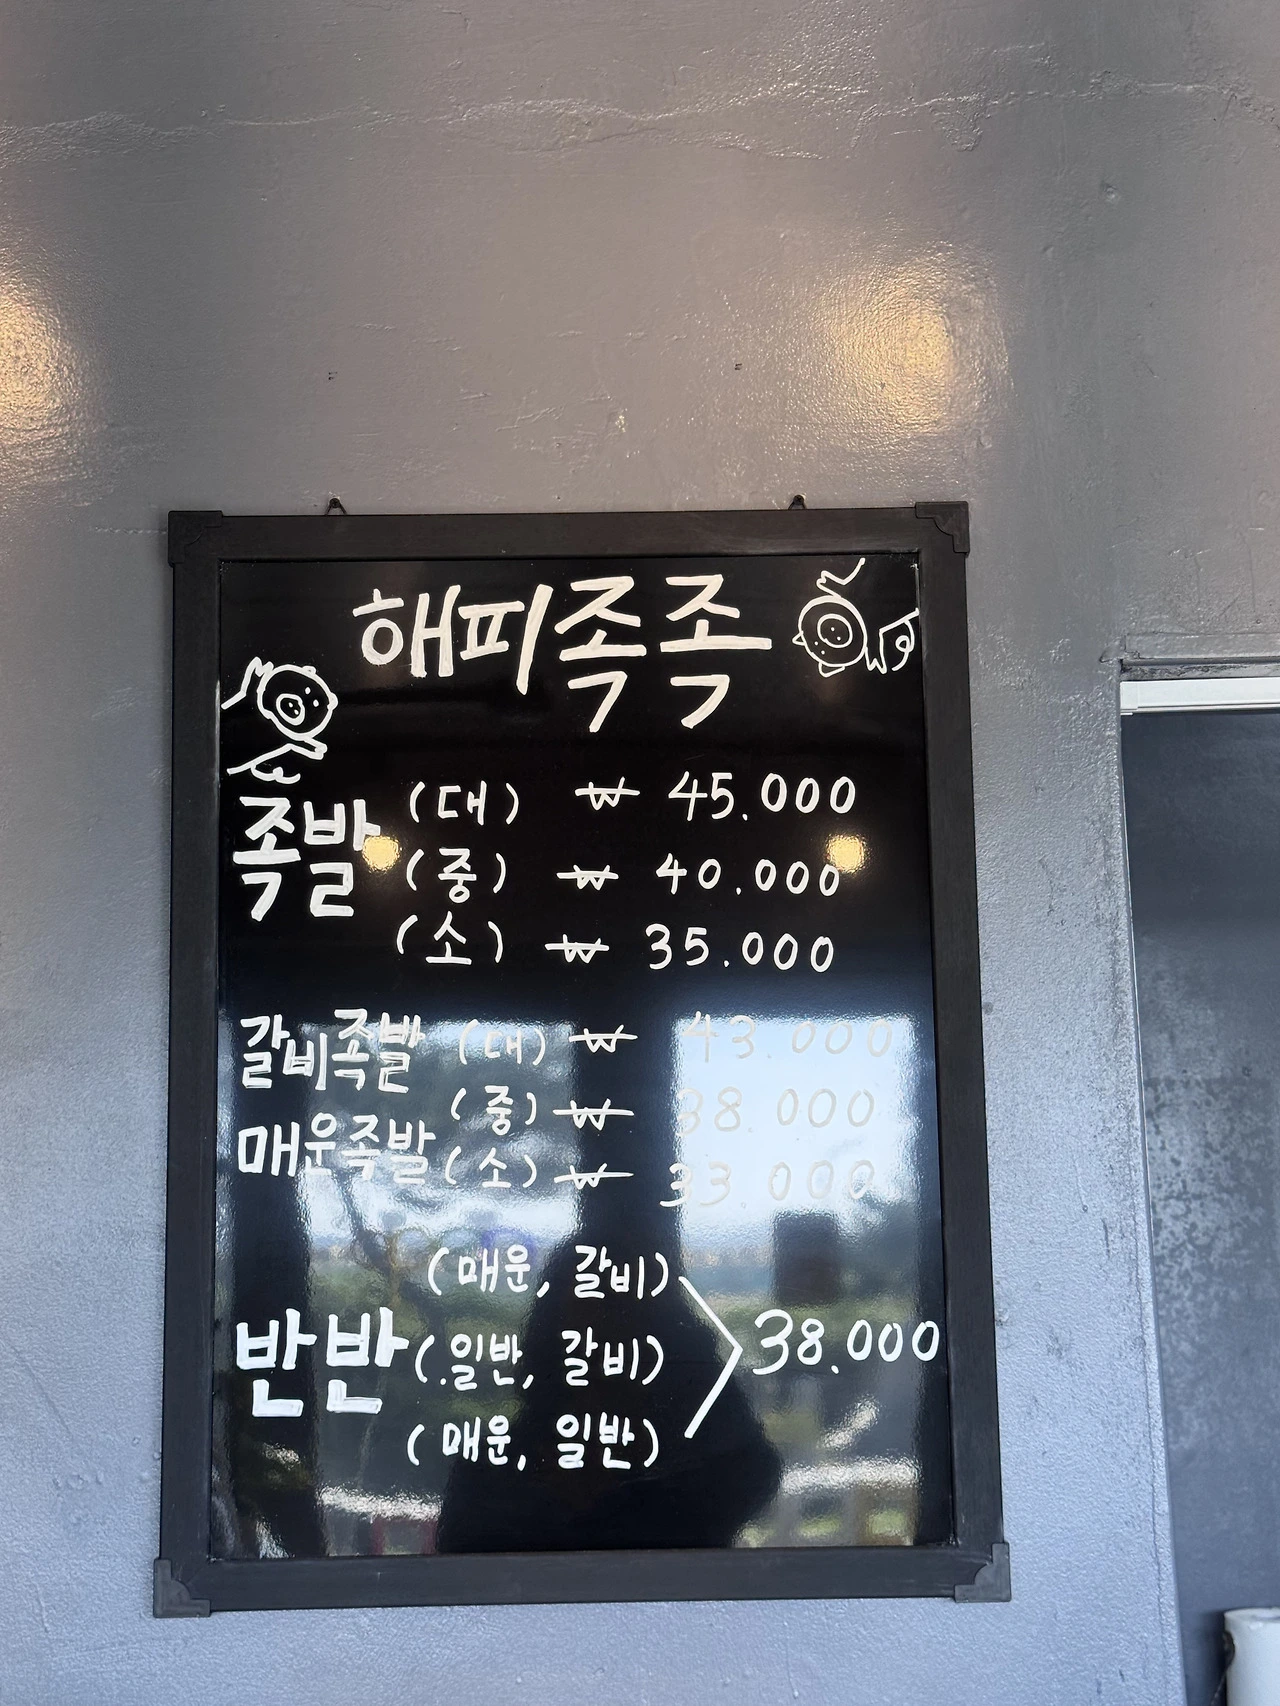 해피족족
족발 (대) ₩ 45.000
(중) ₩ 40.000
(소) ₩ 35.000
갈비족발 (대) ₩ 43.000
(중) ₩ 38.000
매운족발 (소) ₩ 33.000
(매운, 갈비)
반반 (일반, 갈비) 38.000
(매운, 일반)